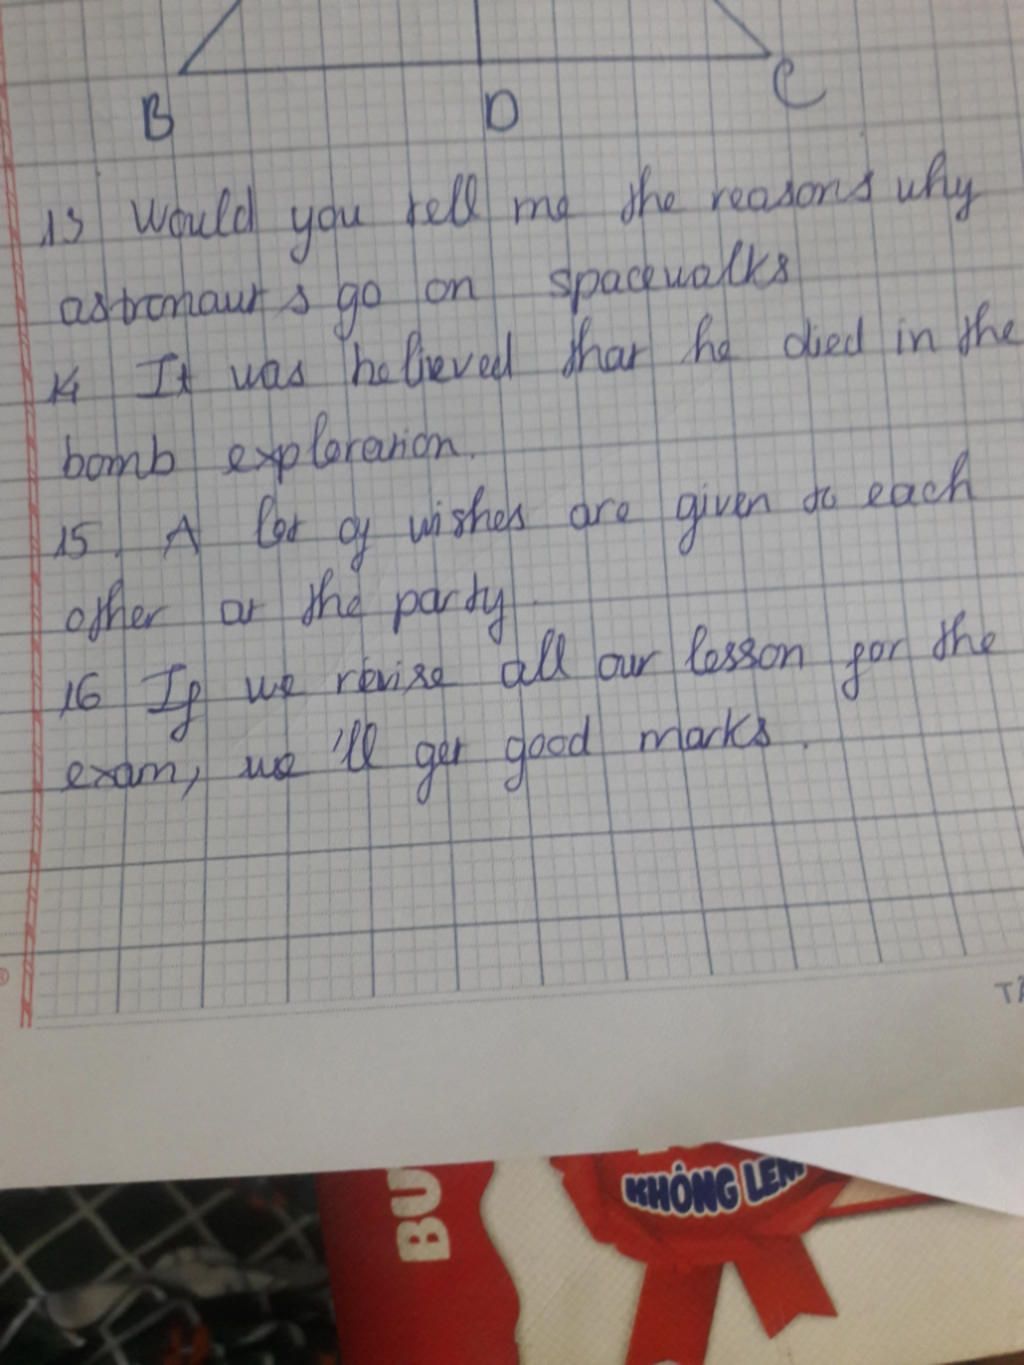 B D C
13 Would you tell me the reasons why
astronaut s go on spacewalks
14 It was believed that he died in the
bomb exploration.
15. A lot of wishes are given to each
other at the party.
16 If we revise all our lesson for the
exam, we 'll get good marks.
TÂ
BU
KHÔNG LEM